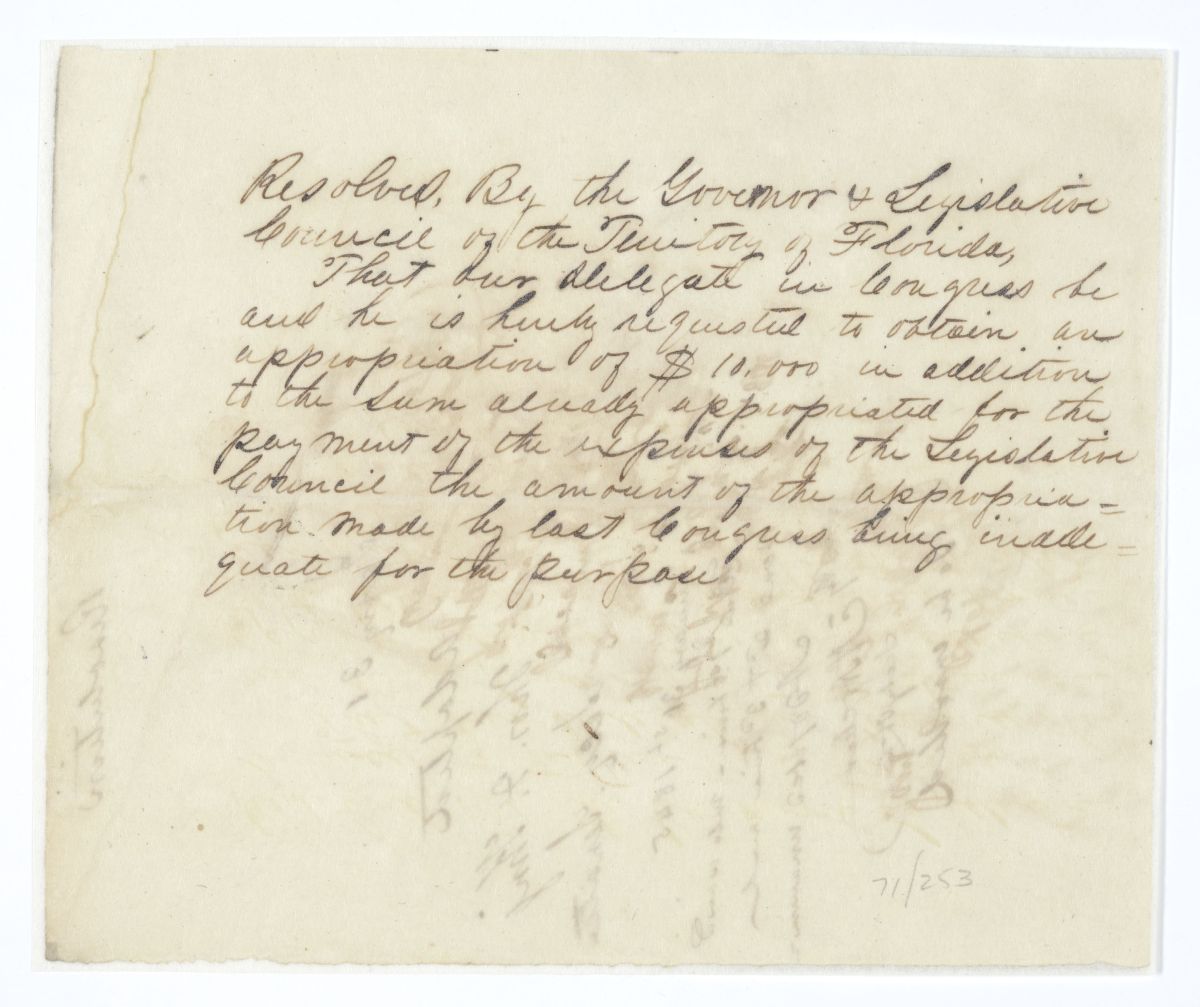 Resolved, By the Governor & Legislative
Council of the Territory of Florida,
That our delegate in Congress be
and he is hereby requested to obtain an
appropriation of $10.000 in addition
to the sum already appropriated for the
payment of the expenses of the Legislative
Council the amount of the appropria=
tion made by last Congress being inade=
quate for the purpose
71/253